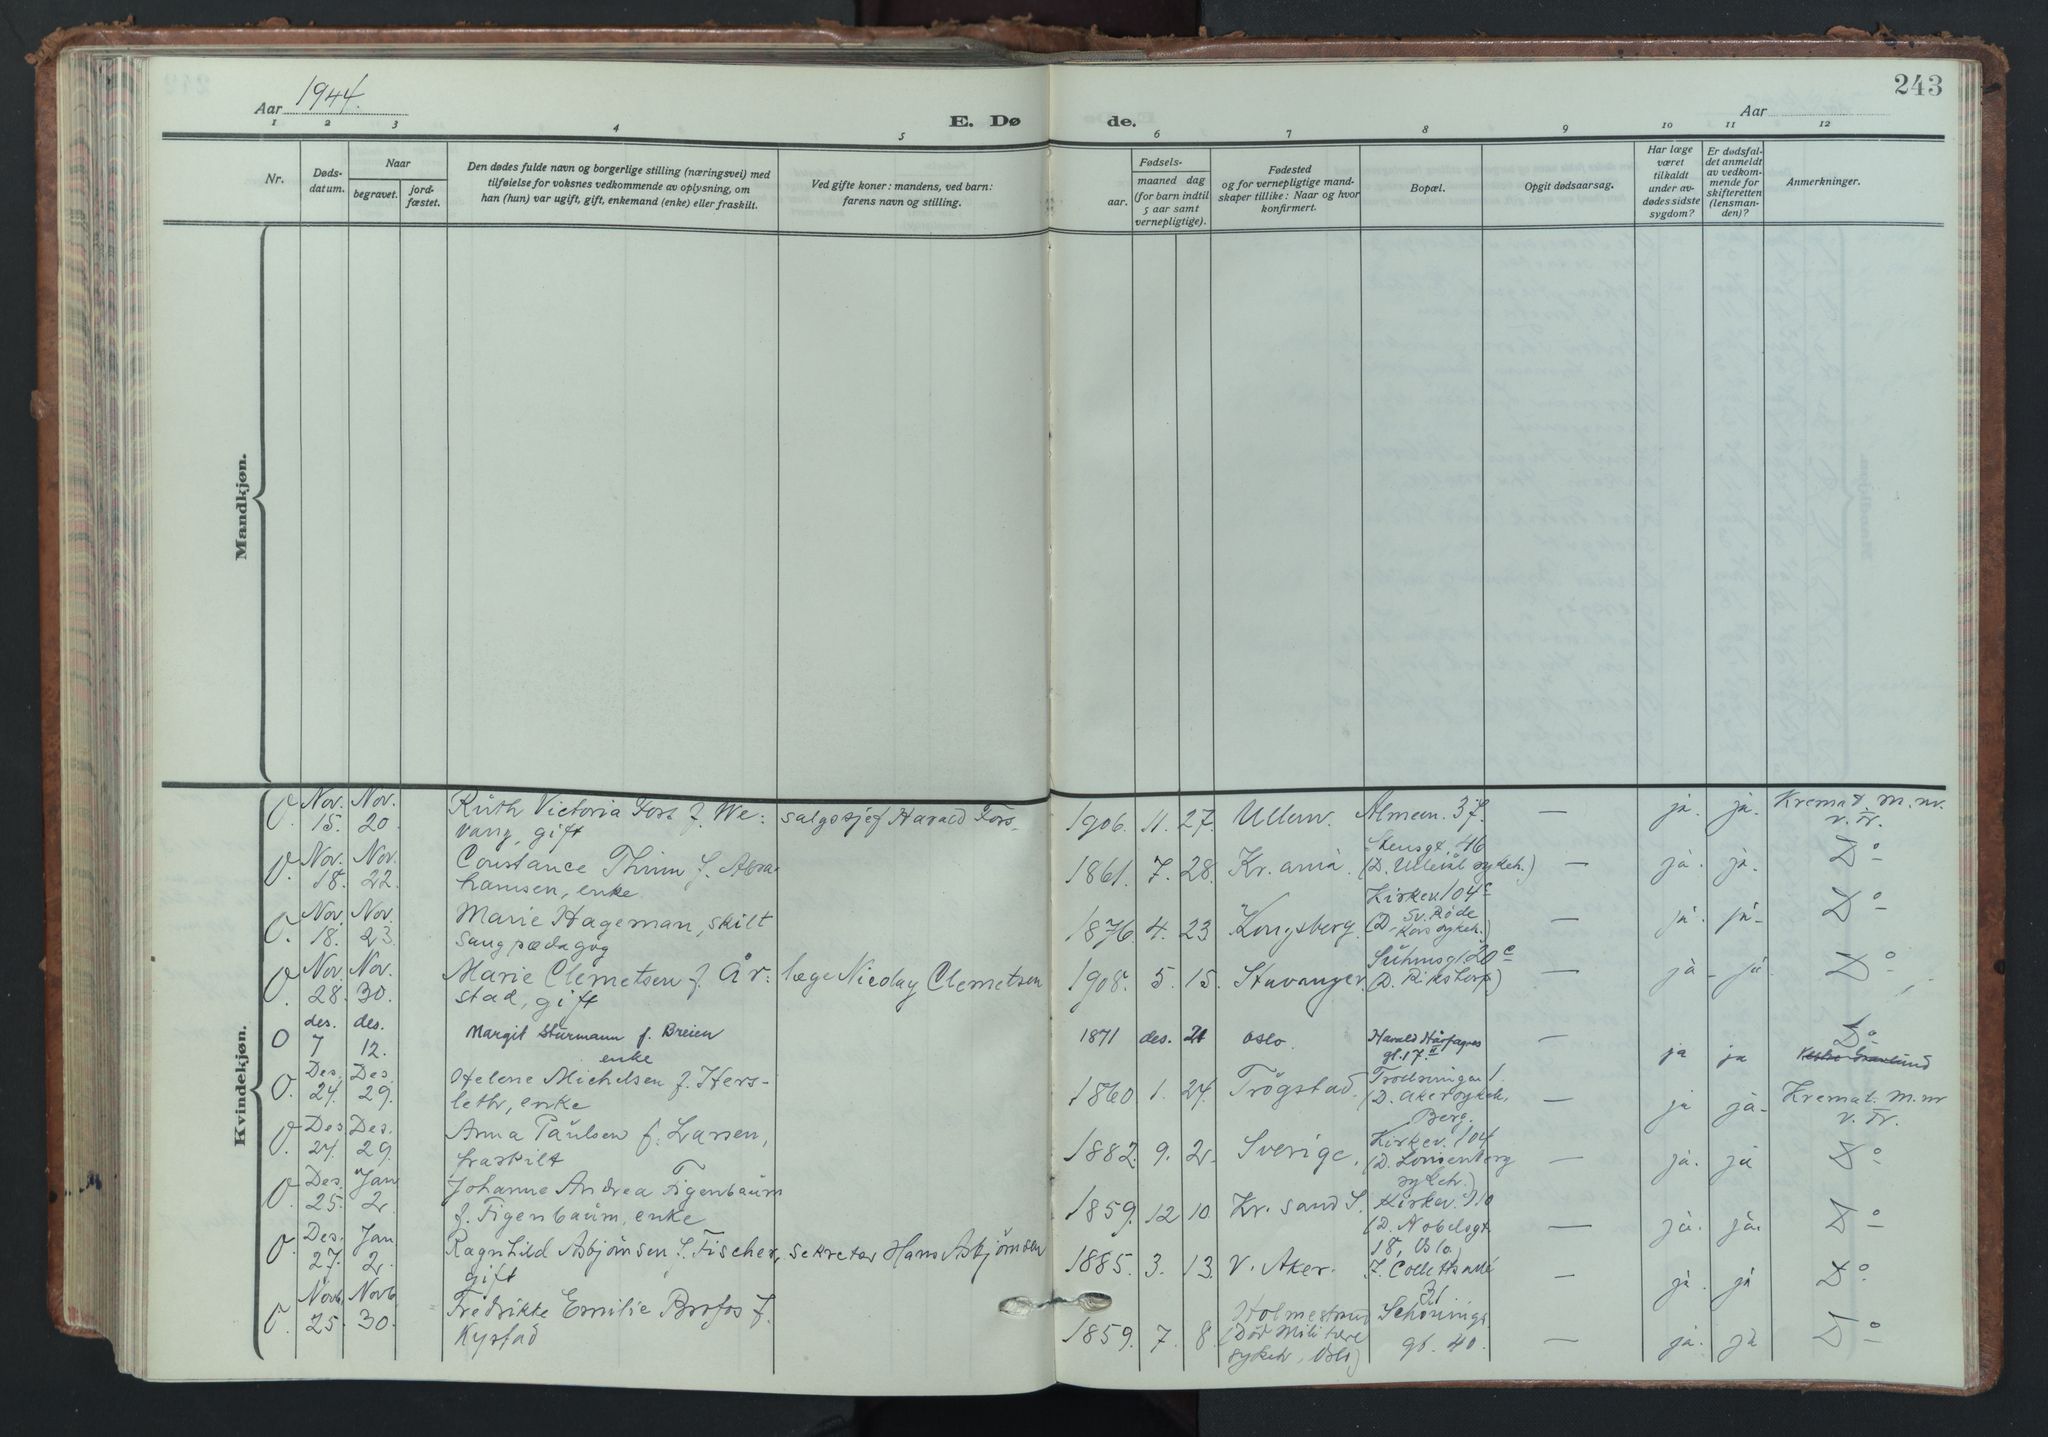 243
Aar 1944.
E. Dø de.
Aar
1 2 3 4 5 6 7 8 9 10 11 12
Nr.
Døds-
datum.
Naar
begravet.
jord-
fæstet.
Den dødes fulde navn og borgerlige stilling (næringsvei) med
tilføielse for voksnes vedkommende av oplysning, om
han (hun) var ugift, gift, enkemand (enke) eller fraskilt.
Ved gifte koner: mandens, ved barn:
farens navn og stilling.
Fødsels-
aar.
maaned dag
(for barn indtil
5 aar samt
vernepligtige).
Fødested
og for vernepligtige mand-
skaper tillike: Naar og hvor
konfirmert.
Bopæl.
Opgit dødsaarsag.
Har læge
været
tilkaldt
under av-
dødes sidste
sygdom?
Er dødsfal-
det anmeldt
av vedkom-
mende for
skifteretten
(lensman-
den)?
Anmerkninger.
Mandkjøn.
Kvindekjøn.
O. Nov. 15. Nov. 20. Ruth Victoria Fors f. We- salgssjef Harald Fors. 1906. 11. 27. Ullern. Almeen. 37. — ja. ja. Kremat. M. nr.
vang, gift v. Tr.
O. Nov. 18. Nov. 22. Constance Thinn f. Abra- 1861. 7. 28. Kr.ania Stensgt. 46 — ja. ja. Do
hamsen, enke (D. Ullevål sykeh.)
O. Nov. 18. Nov. 23. Marie Hageman, skilt 1876. 4. 23 Kongsberg. Kirkev. 104c — ja. ja- Do
sangpædagog (D. Røde
Kors sykeh.)
O. Nov. 28. Nov. 30. Marie Clemetsen f. År- læge Nicolay Clemetsen 1908. 5. 15. Stavanger. Suhmsgt. 20c — ja - ja Do
stad, gift (D. Rikshosp.)
O des. 7 des. 12. Margit Sturmann f. Breien 1871 des. 21 Oslo. Harald Hårfagres — ja ja Do
enke gt. 17. II
Vestre Gravlund
O. Des. 24. Des. 29. Helene Michelsen f. Hers- 1860. 1. 24. Trøgstad. 1. — ja ja- Kremat. M. nr
leth, enke (D. Aker sykeh. v. Tr.
Berg.
O. Des. 24. Des. 29. Anna Paulsen f. Larsen, 1882. 9. 2. Sverige. Kirkev. 104 — ja. ja Do
fraskilt (D. Lovisenberg
sykeh.)
O. Des. 25. Jan 2. Johanne Andrea Figenbaum 1859. 12 10. Kr.sand S. Kirkev. 110 — ja. ja. Do
f. Figenbaum, enke (D. Nobelsgt.
18, Oslo.)
O. Des. 27. Jan 2. Ragnhild Asbjørnsen f. Fischer, sekretær Hans Asbjørnsen 1885. 3. 13. V. Aker. J. Colletts allé — ja. ja Do.
gift 31
O. Novb. 25. Novb. 30. Fredrikke Emilie Brofos f. 1859. 7. 8. Holmestrand Schønings — ja. ja Do
Kystad (Død Militære gt. 40.
sykeh., Oslo)